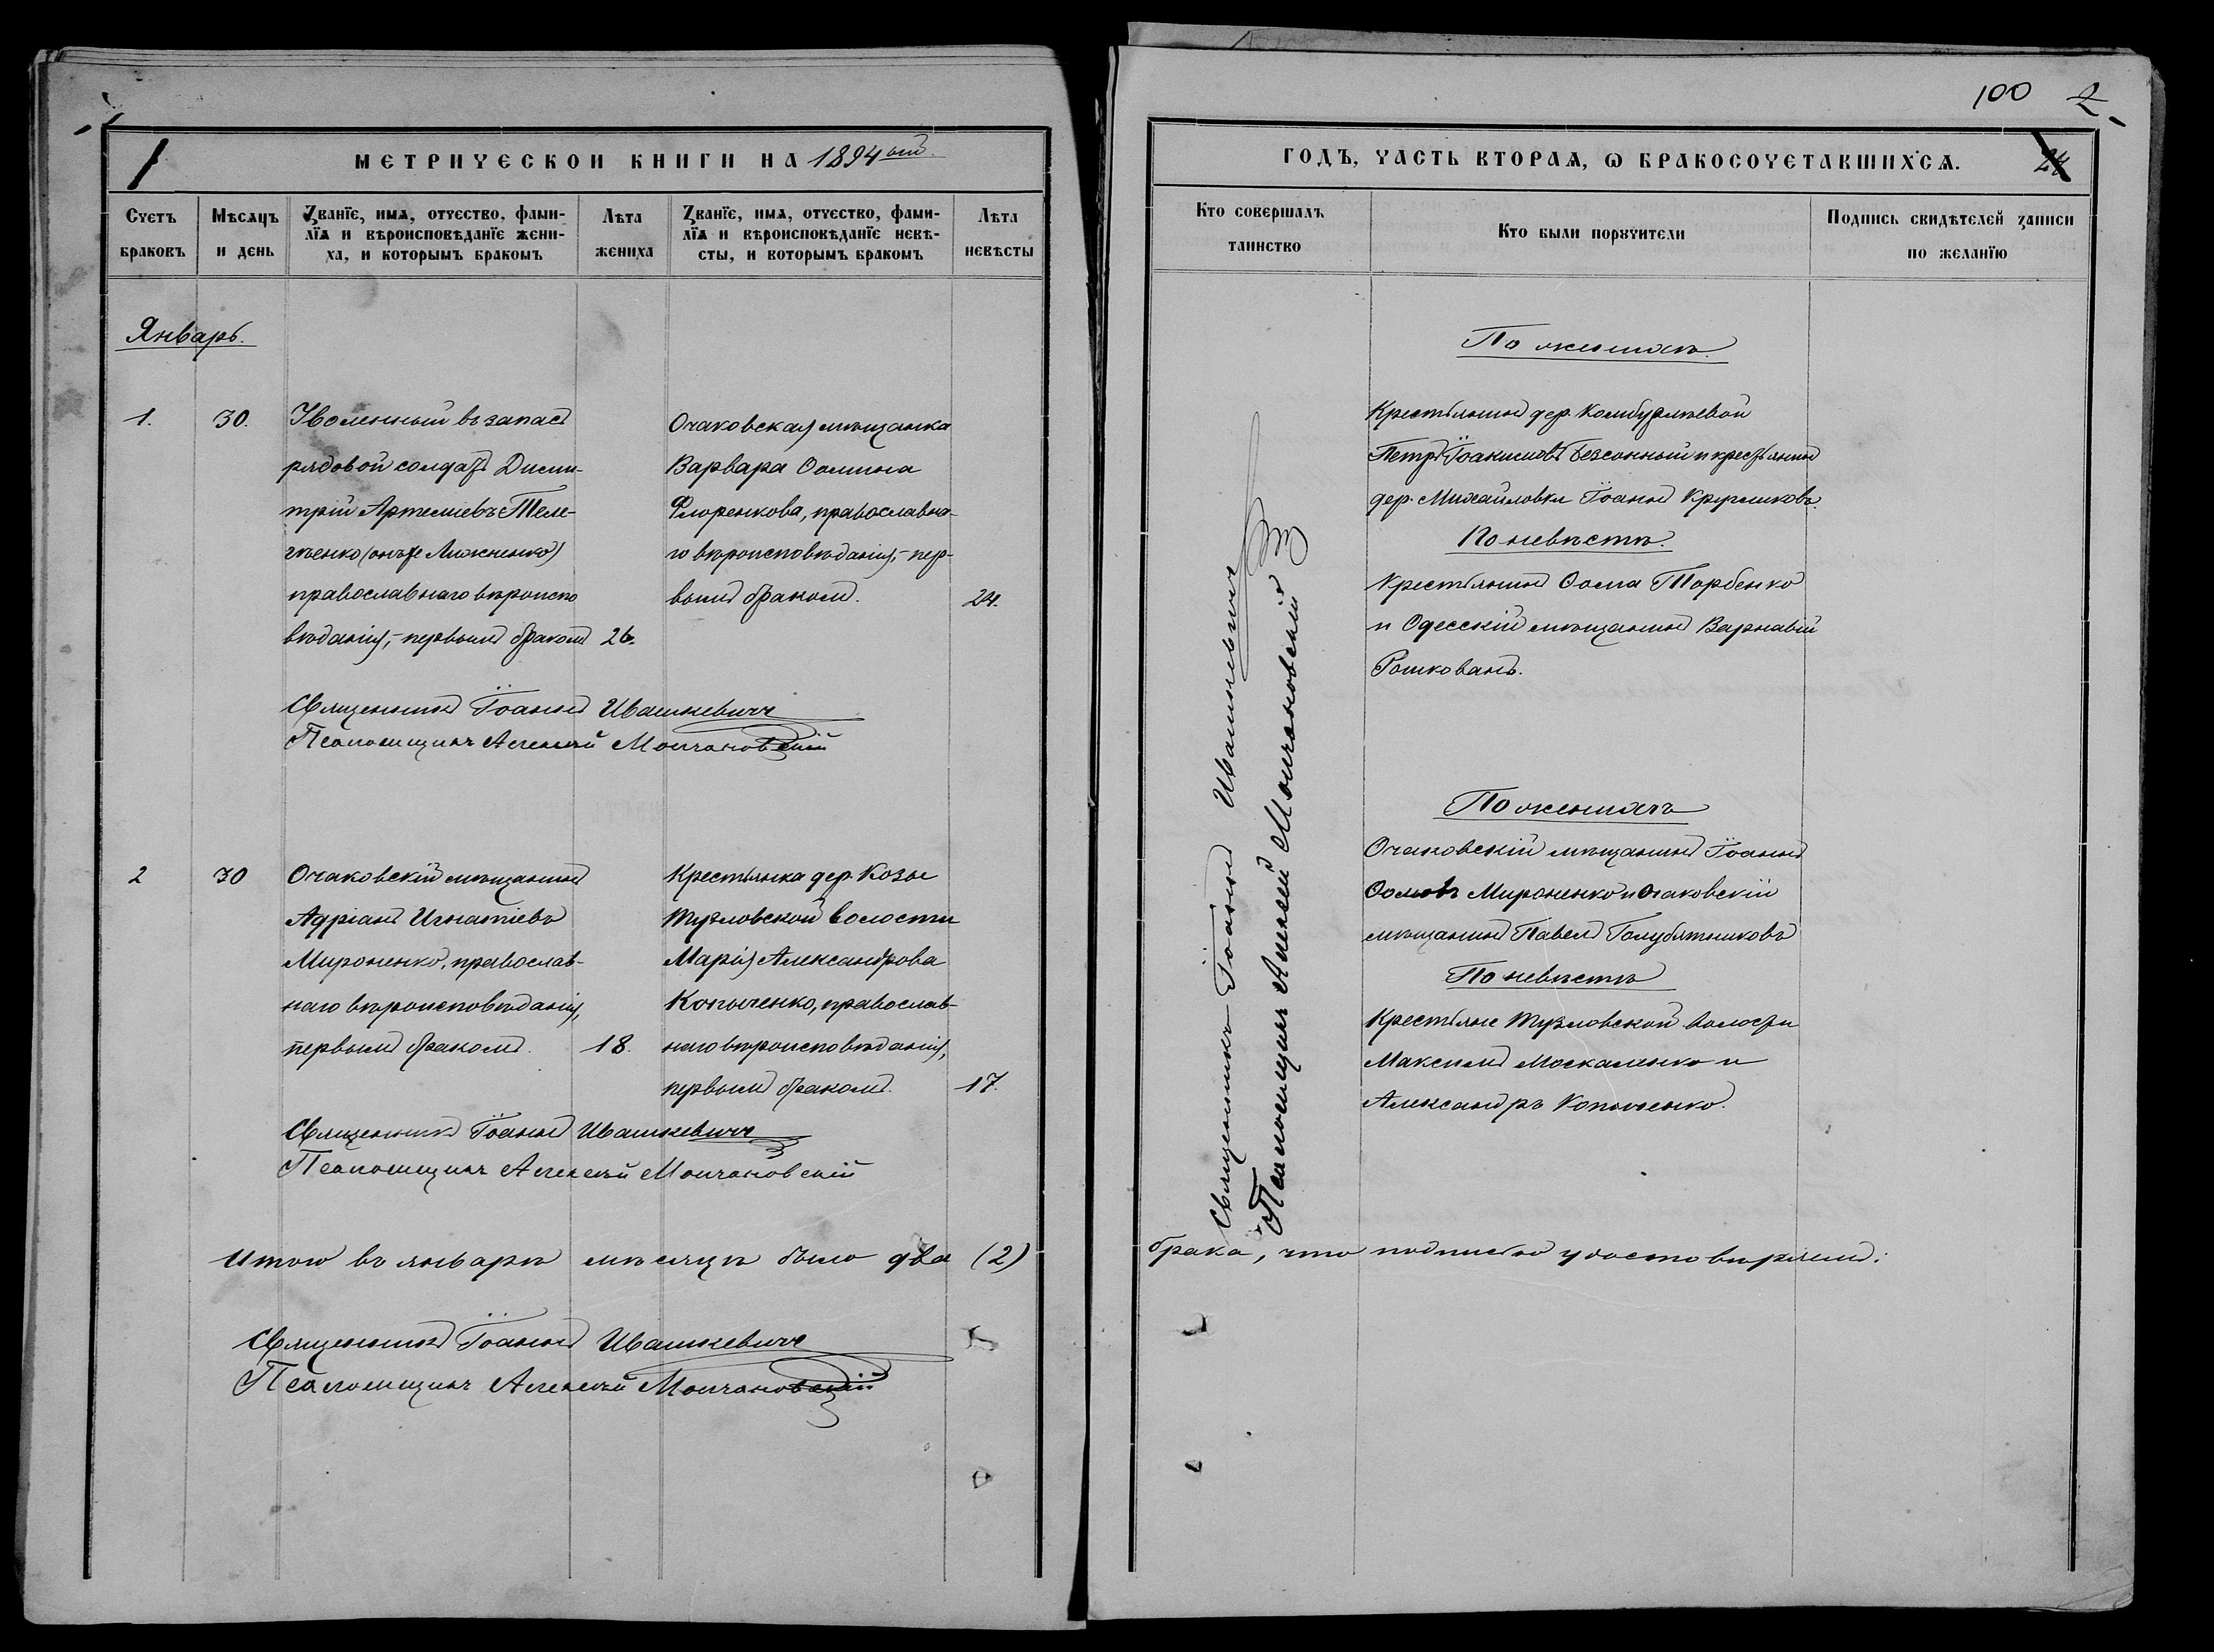 1
МЕТРИЧЕСКОИ КНИГИ НА 1894ый.
Счетъ браковъ
Мѣсяцъ и день
Званіе, имя, отчество, фами-
лія и вѣроисповѣданіе жени-
ха, и которымъ бракомъ
Лѣта жениха
Званіе, имя, отчество, фами-
лія и вѣроисповѣданіе невѣ-
сты, и которымъ бракомъ
Лѣта невѣсты
Январь.
1.
30.
Уволенный въ запасъ
рядовой солдатъ Дими-
трій Артеміевъ Теле-
женко (онъ же Лихненко)
православнаго вѣроиспо
вѣданія,- первымъ бракомъ
26.
Очаковская мѣщанка
Варвара Ѳомина
Флоренкова, православна-
го вѣроисповѣданія,- пер-
вымъ бракомъ.
24.
Священникъ Іоаннъ Ивашкевичъ
Псаломщикъ Алексѣй Молчановскій
2
30
Очаковскій мѣщанинъ
Адріанъ Игнатіевъ
Мироненко, православ-
наго вѣроисповѣданія,
первымъ бракомъ.
18.
Крестьянка дер. Козы
Тузловской волости
Марія Александрова
Копыченко, православ-
наго вѣроисповѣданія,
первымъ бракомъ.
17.
Священникъ Іоаннъ Ивашкевичъ
Псаломщикъ Алексѣй Молчановскій
Итого въ январѣ мѣсяцѣ было два (2)
Священникъ Іоаннъ Ивашкевичъ
Псаломщикъ Алексѣй Молчановскій
100 2
ГОДЪ, ЧАСТЬ ВТОРАЯ, Ѡ БРАКОСОЧЕТАВШИХСЯ.
24
Кто совершалъ
таинство
Кто были поручители
Подпись свидѣтелей записи
по желанію
Священникъ Іоаннъ Ивашкевичъ
Псаломщикъ Алексѣй Молчановскій
По женихѣ.
Крестьянинъ дер.
Петръ Іоакимовъ Безсонный и крестьянинъ
дер. Михайловки Іоаннъ Кругликовъ.
По невѣстѣ.
Крестьянинъ Ѳома Торбенко
и Одесскій мѣщанинъ Варнавій
Рошкованъ.
По женихѣ
Очаковскій мѣщанинъ Іоаннъ
Ѳомовъ Мироненко и Очаковскій
мѣщанинъ Павелъ Голубятниковъ
По невѣстѣ
Крестьяне Тузловской волости
Максимъ Москаленко и
Александръ Копыченко.
брака, что подписью удостовѣряемъ: